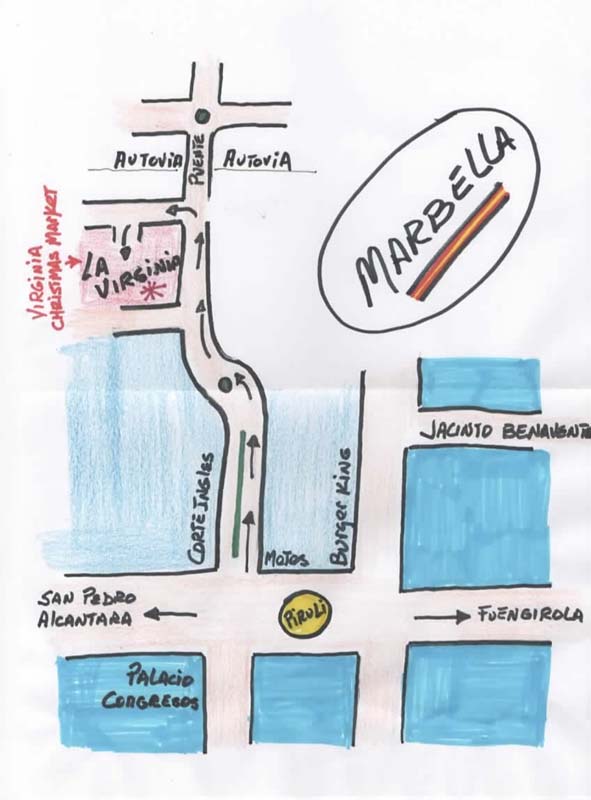 AUTOVIA
PUENTE
AUTOVIA
MARBELLA
VIRGINIA
CHRISTMAS MARKET
LA
VIRGINIA
JACINTO BENAVENTE
CORTE INGLES
Motos
Burger King
SAN PEDRO
ALCANTARA
PIRULI
FUENGIROLA
PALACIO
CONGRESOS